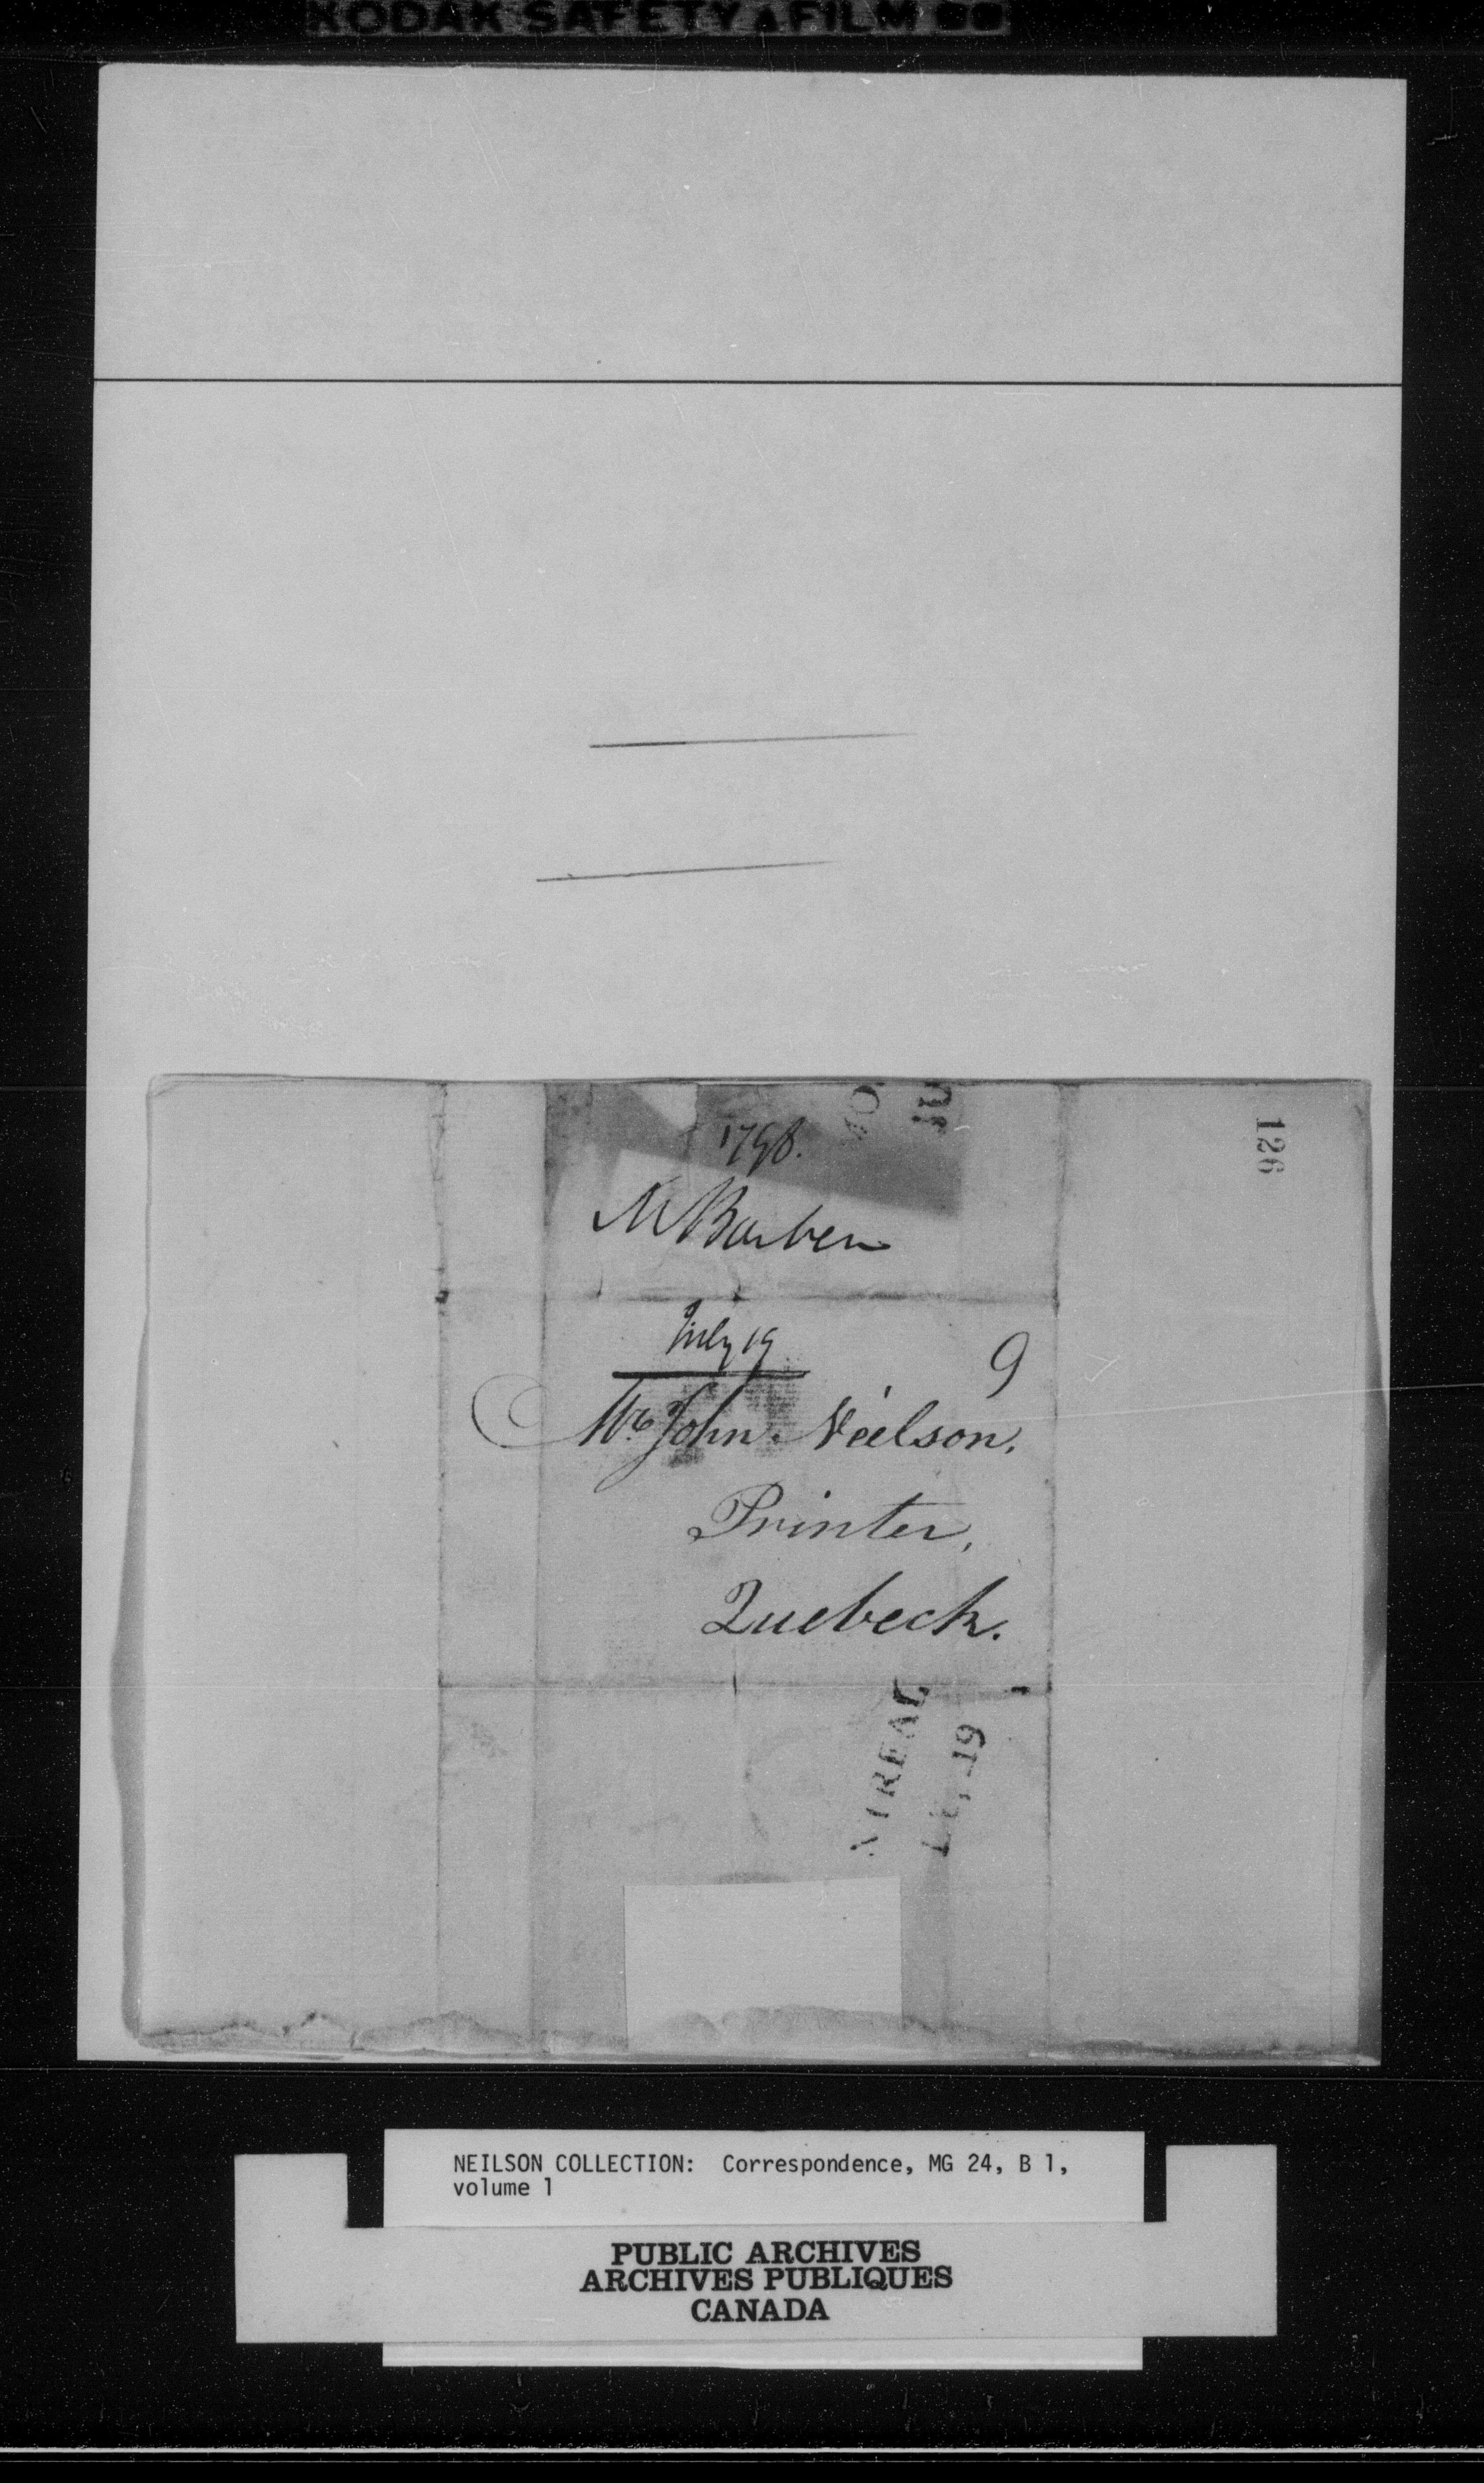 KODAK SAFETY FILM
126
1798.
M Barber
July 19
9
Mr. John Neilson.
Printer,
Quebeck.
NTREAL
19
NEILSON COLLECTION: Correspondence, MG 24, B 1,
volume 1
PUBLIC ARCHIVES
ARCHIVES PUBLIQUES
CANADA